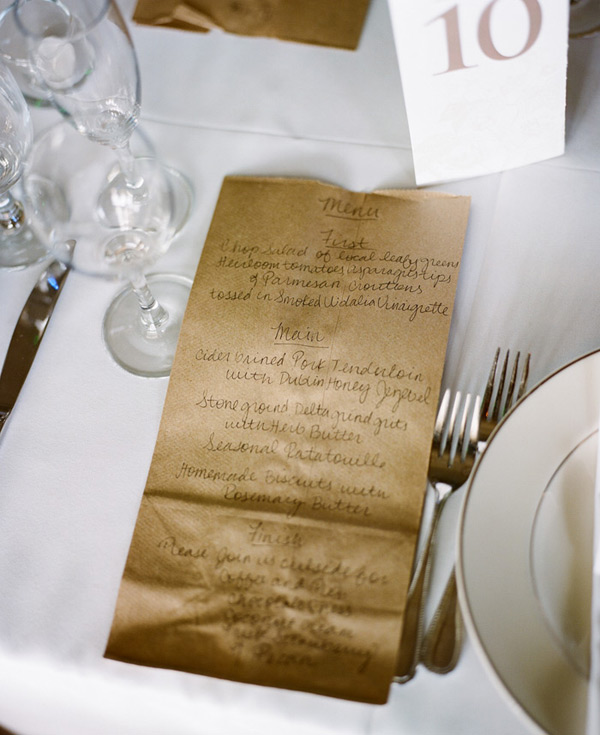 10
Menu
First
Chop Salad of local leafy greens
Heirloom tomatoes, asparagus tips
& Parmesan Croutons
tossed in Smoked Vidalia Vinaigrette
Main
Cider brined Pork Tenderloin
with Dublin Honey Jezebel
Stone ground Delta grind grits
with Herb Butter
Seasonal Ratatouille
Homemade Biscuits with
Rosemary Butter
Finish
Please join us outside for
Coffee and Pies
Chocolate
Coconut Cream
Strawberry
& Pecan